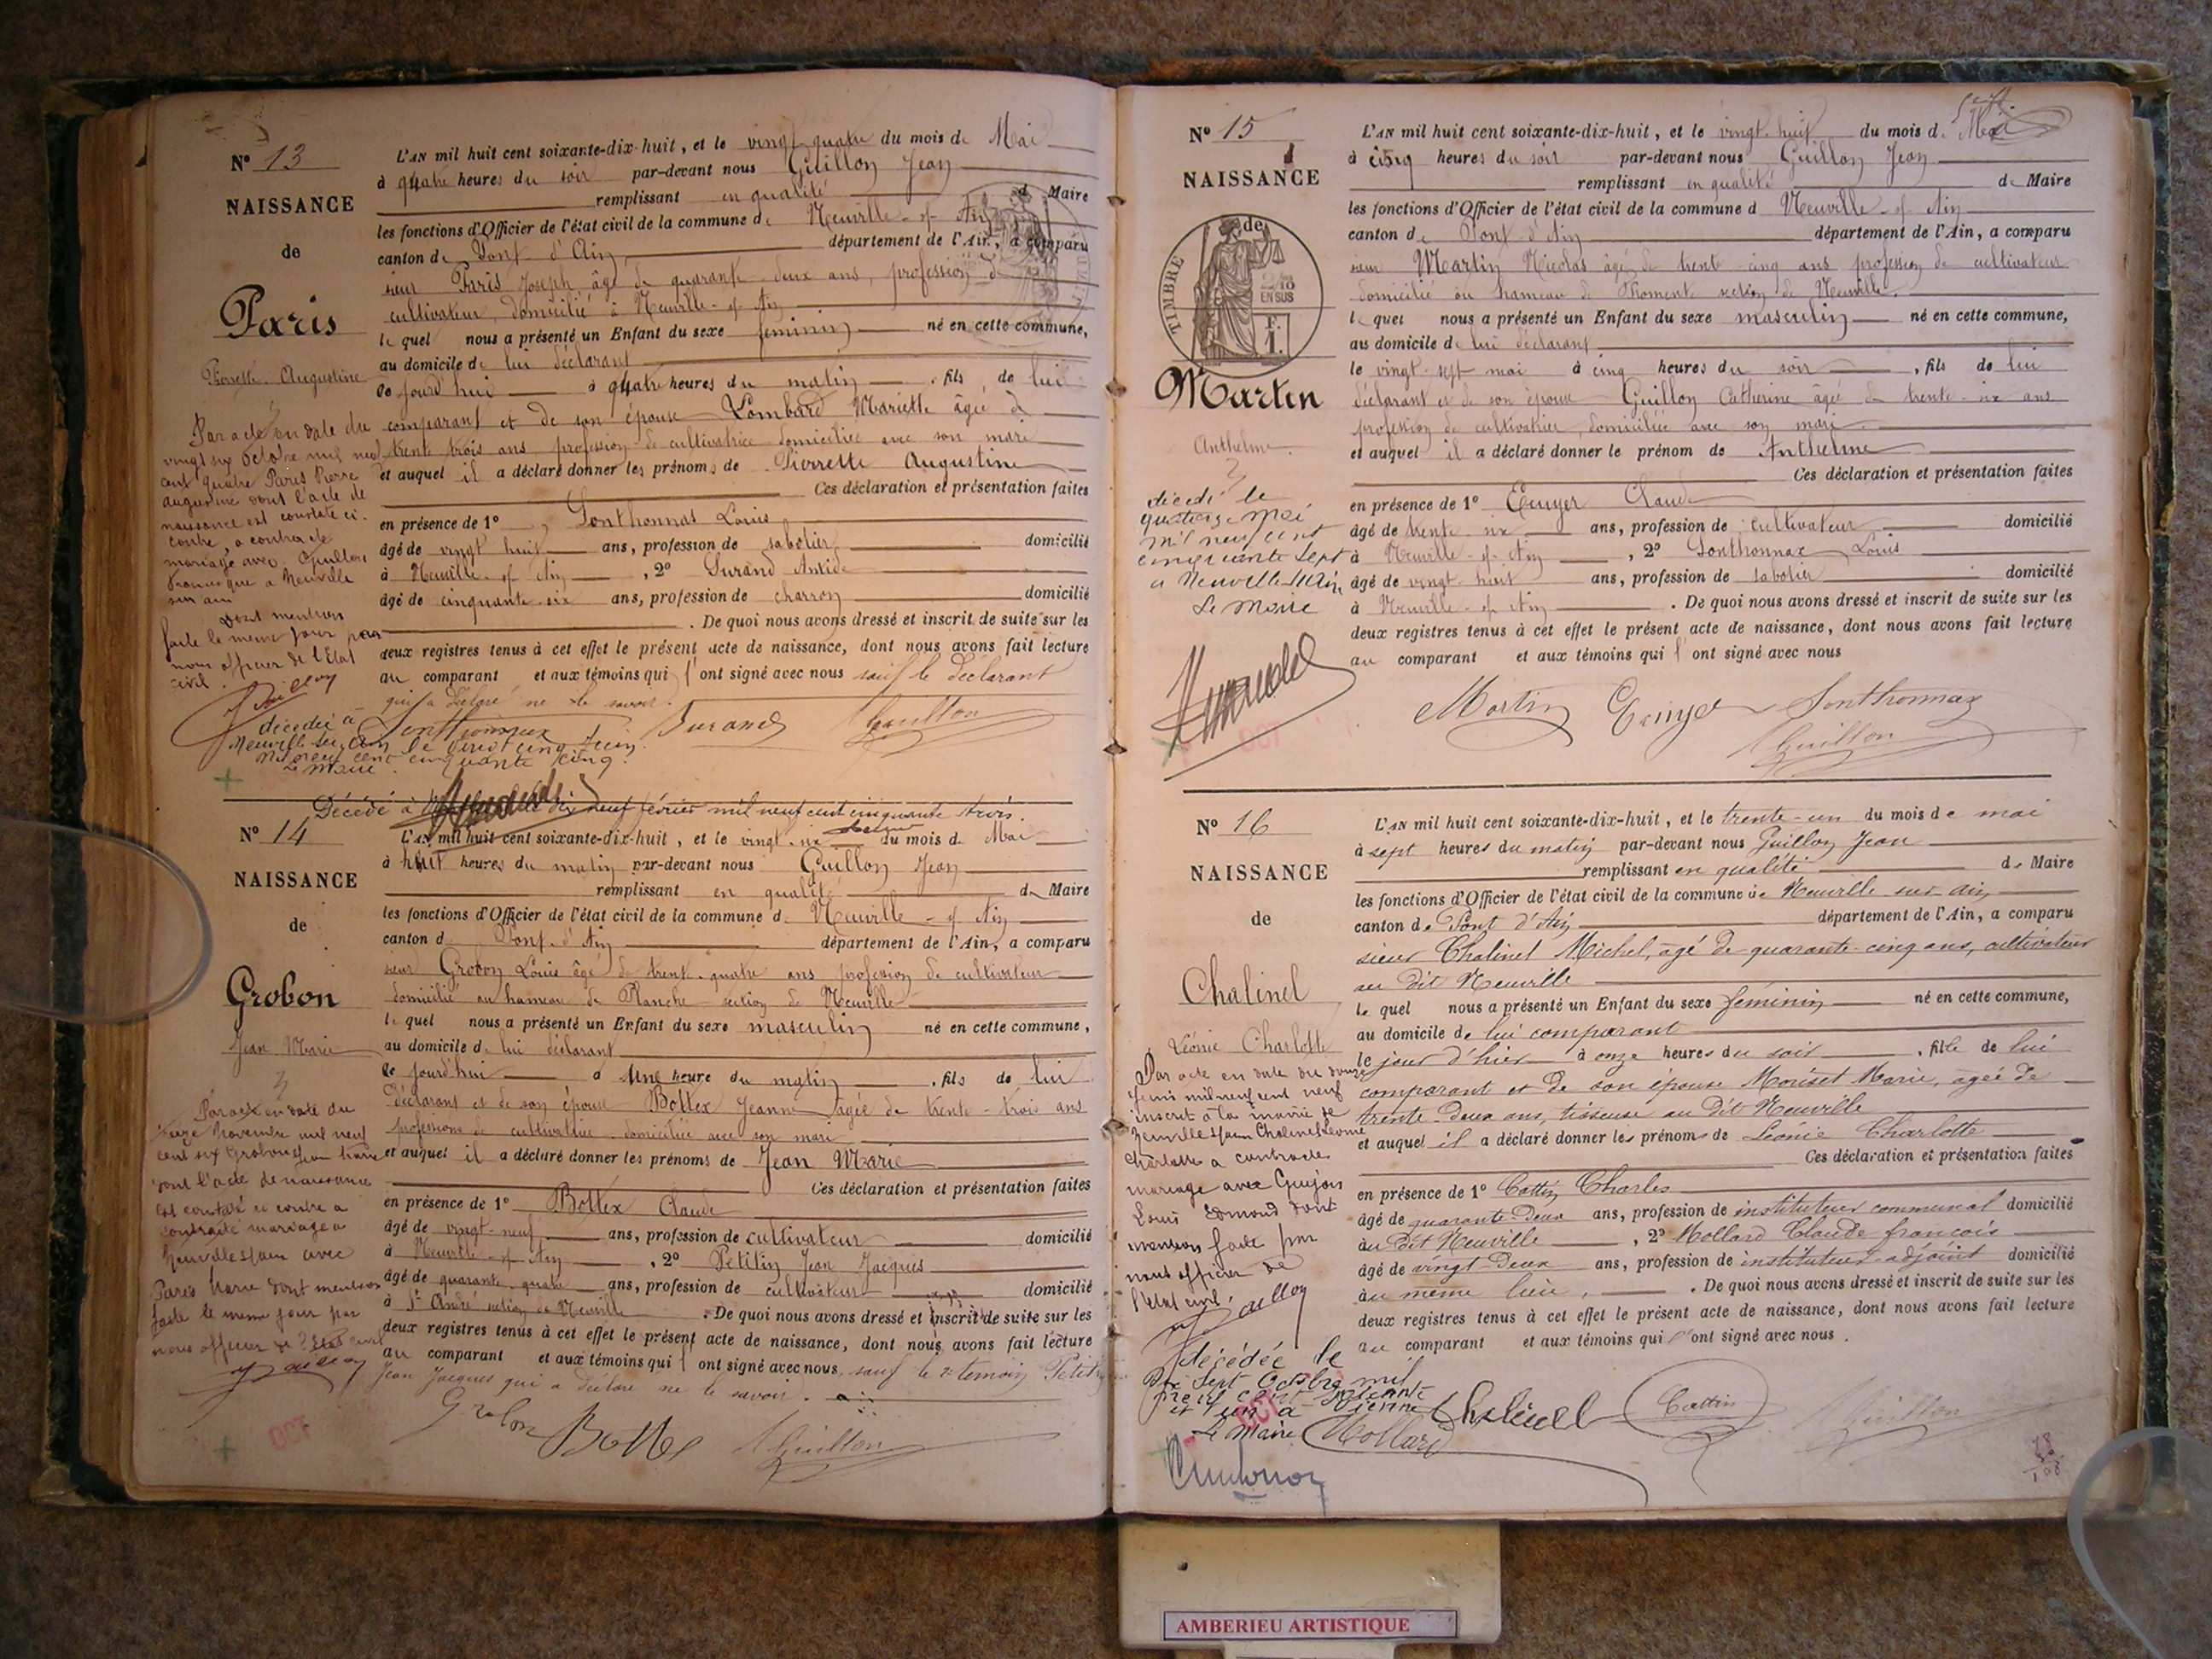 N° 13
NAISSANCE
de
Paris
Pierrette Augustine
Par acte en date du
vingt six octobre mil neuf
cent quatre Paris Pierre
augustine dont l'acte de
naissance est constaté ci-
contre, a contracté
mariage avec Guillon
à Neuville
sur ain
Dont mention
faite le meme jour par
nous officier de l'Etat
civil.
décédée à
Neuville sur Ain le vingt cinq juin
mil neuf cent cinquante cinq.
Le Maire
L'AN mil huit cent soixante-dix-huit, et le vingt quatre du mois de Mai
à quatre heures du soir par-devant nous Guillon Jean
remplissant en qualité de Maire
les fonctions d'Officier de l'état civil de la commune de Neuville-s/-Ain
canton de Pont-d'Ain, département de l'Ain, a comparu
sieur Paris Joseph, âgé de quarante-deux ans, profession de
cultivateur, domicilié à Neuville-s/-Ain
lequel nous a présenté un Enfant du sexe féminin né en cette commune,
au domicile de lui déclarant
ce jourd'hui à quatre heures du matin, fils de lui
comparant et de son épouse Lombard Mariette âgée de
trente trois ans profession de cultivatrice domiciliée avec son mari
et auquel il a déclaré donner les prénoms de Pierrette Augustine
Ces déclaration et présentation faites
en présence de 1° Sonthonnas Louis
âgé de vingt huit ans, profession de sabotier domicilié
à Neuville-s/-Ain, 2° Durand Antide
âgé de cinquante-six ans, profession de charron domicilié
. De quoi nous avons dressé et inscrit de suite sur les
deux registres tenus à cet effet le présent acte de naissance, dont nous avons fait lecture
au comparant et aux témoins qui l'ont signé avec nous sauf le déclarant
qui a déclaré ne le savoir.
Sonthonnax Durand Guillon
Décédé à dix neuf février mil neuf cent cinquante trois.
N° 14
NAISSANCE
de
Grobon
Jean Marie
Par acte en date du
seize Novembre mil neuf
cent six Grobon Jean Marie
dont l'acte de naissance
est constaté ci contre a
contracté mariage à
Neuville s/ain avec
Paris Marie dont mention
faite le meme jour par
nous officier de l'Etat civil
L'AN mil huit cent soixante-dix-huit, et le vingt-six du mois de Mai
à huit heures du matin par-devant nous Guillon Jean
remplissant en qualité de Maire
les fonctions d'Officier de l'état civil de la commune de Neuville-s/-Ain
canton de Pont-d'Ain département de l'Ain, a comparu
sieur Grobon Louis âgé de trente-quatre ans profession de cultivateur
domicilié au hameau de Planche section de Neuville
lequel nous a présenté un Enfant du sexe masculin né en cette commune,
au domicile de lui déclarant
ce jourd'hui à une heure du matin, fils de lui
déclarant et de son épouse Bottex Jeanne âgée de trente-trois ans
profession de cultivatrice domiciliée avec son mari
et auquel il a déclaré donner les prénoms de Jean Marie
Ces déclaration et présentation faites
en présence de 1° Bottex Claude
âgé de vingt-neuf ans, profession de cultivateur domicilié
à Neuville-s/-Ain, 2° Petitin Jean Jacques
âgé de quarante-quatre ans, profession de cultivateur domicilié
à St André section de Neuville. De quoi nous avons dressé et inscrit de suite sur les
deux registres tenus à cet effet le présent acte de naissance, dont nous avons fait lecture
au comparant et aux témoins qui l'ont signé avec nous, sauf le 2e témoin Petitin
Jean Jacques qui a déclaré ne le savoir.
Grobon Bottex Guillon
OCT
N° 15
NAISSANCE
de
TIMBRE
2/10
EN SUS
F.
1.
Martin
Anthelme
décédé le
quatorze Mai
mil neuf cent
cinquante sept
à Neuville-s/Ain
Le Maire
L'AN mil huit cent soixante-dix-huit, et le vingt-huit du mois de Mai
à cinq heures du soir par-devant nous Guillon Jean
remplissant en qualité de Maire
les fonctions d'Officier de l'état civil de la commune d Neuville-s/-Ain
canton de Pont-d'Ain département de l'Ain, a comparu
sieur Martin Nicolas âgé de trente-cinq ans profession de cultivateur
domicilié au hameau de Thoment section de Neuville.
lequel nous a présenté un Enfant du sexe masculin né en cette commune,
au domicile de lui déclarant
le vingt-sept mai à cinq heures du soir, fils de lui
déclarant et de son épouse Guillon Catherine âgée de trente-six ans
profession de cultivatrice, domiciliée avec son mari.
et auquel il a déclaré donner le prénom de Anthelme
Ces déclaration et présentation faites
en présence de 1° Claude
âgé de trente-six ans, profession de cultivateur domicilié
à Neuville-s/-Ain, 2° Sonthonnax Louis
âgé de vingt-huit ans, profession de sabotier domicilié
à Neuville-s/-Ain. De quoi nous avons dressé et inscrit de suite sur les
deux registres tenus à cet effet le présent acte de naissance, dont nous avons fait lecture
au comparant et aux témoins qui l'ont signé avec nous
Martin Sonthonnax
Guillon
N° 16
NAISSANCE
de
Chalinel
Léonie Charlotte
Par acte en date du douze
juin mil neuf cent neuf
inscrit à la mairie de
Neuville s/ain Chalinel Léonie
Charlotte a contracté
mariage avec Goujon
Louis Edmond dont
mention faite par
nous officier de
l'Etat civil.
décédée le
dix sept Octobre mil
neuf cent soixante
et un à Vienne
Le Maire
L'AN mil huit cent soixante-dix-huit, et le trente-un du mois de mai
à sept heures du matin par-devant nous Guillon Jean
remplissant en qualité de Maire
les fonctions d'Officier de l'état civil de la commune de Neuville sur-ain
canton de Pont d'Ain département de l'Ain, a comparu
sieur Chalinel Michel, âgé de quarante-cinq ans, cultivateur
au dit Neuville
lequel nous a présenté un Enfant du sexe féminin né en cette commune,
au domicile de lui comparant
le jour d'hier à onze heures du soir, fille de lui
comparant et de son épouse Moriset Marie, âgée de
trente-deux ans, tisseuse au dit Neuville
et auquel il a déclaré donner les prénoms de Léonie Charlotte
Ces déclaration et présentation faites
en présence de 1° Cottin Charles
âgé de quarante-deux ans, profession de instituteur communal domicilié
au dit Neuville, 2° Mollard Claude françois
âgé de vingt deux ans, profession de instituteur-adjoint domicilié
au même lieu. De quoi nous avons dressé et inscrit de suite sur les
deux registres tenus à cet effet le présent acte de naissance, dont nous avons fait lecture
au comparant et aux témoins qui l'ont signé avec nous.
Chalinel Cottin Guillon
Mollard
AMBERIEU ARTISTIQUE